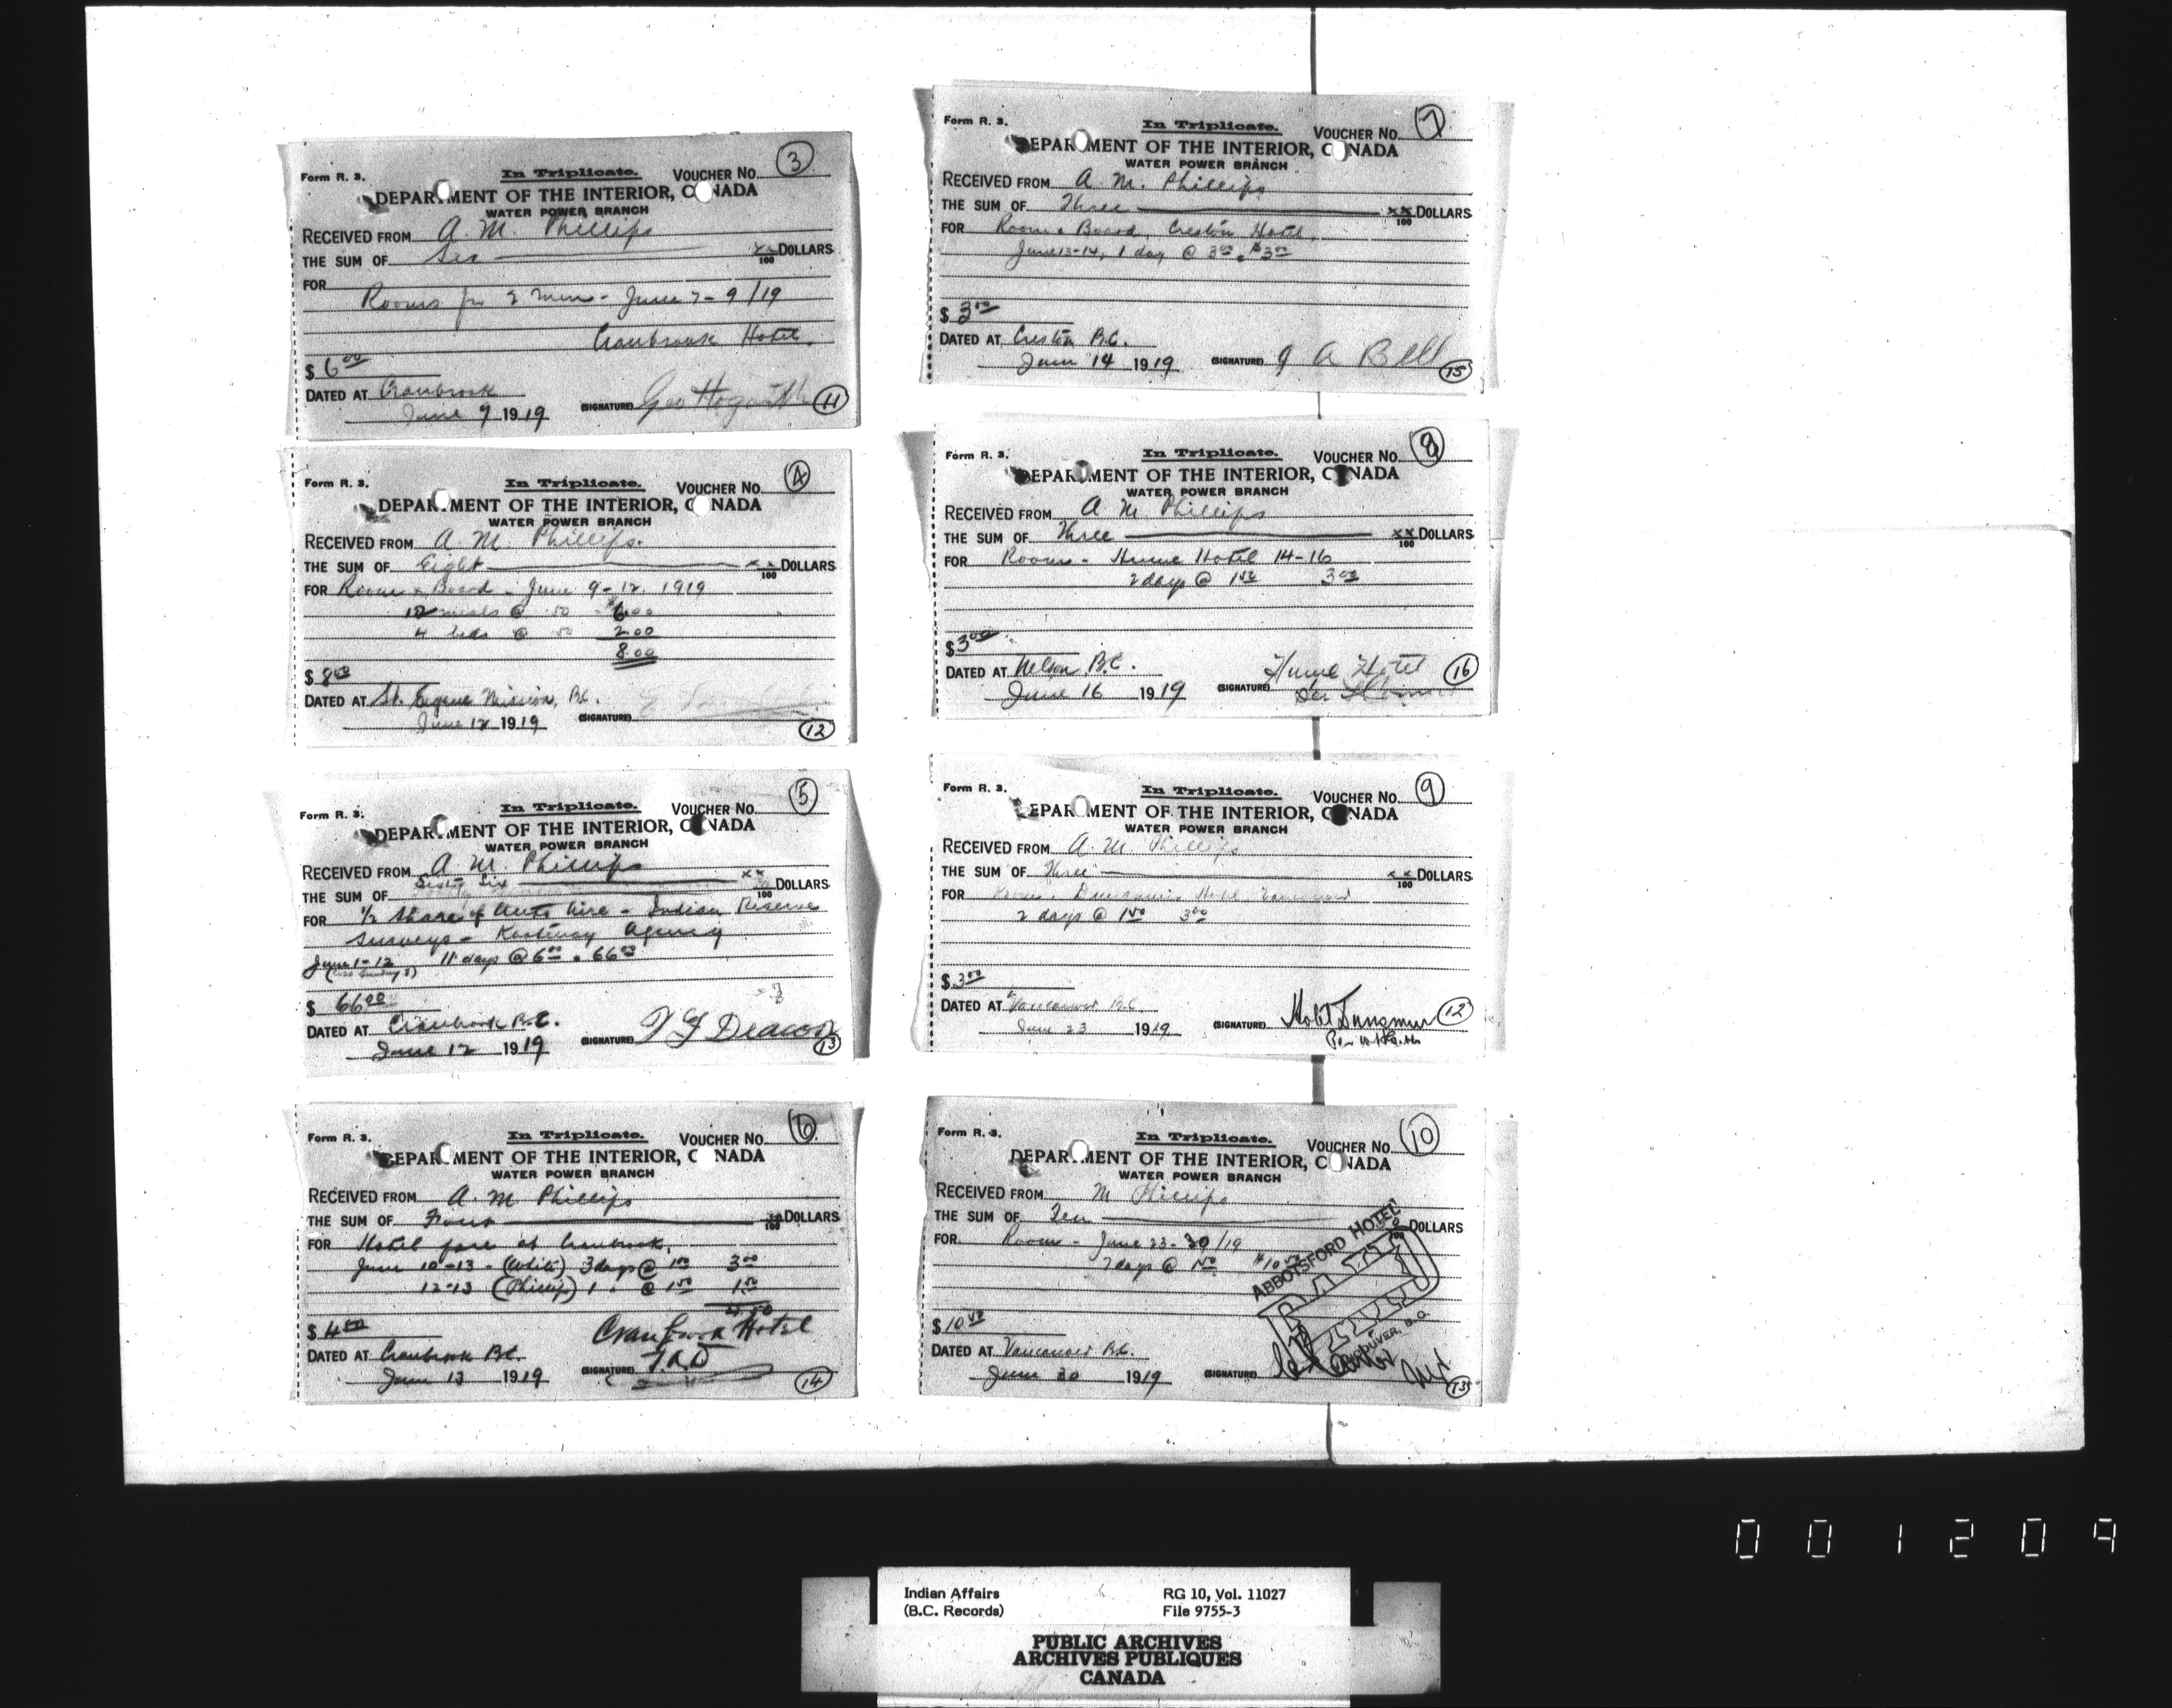 Form R. 3.
In Triplicate.
VOUCHER No. 3
DEPARTMENT OF THE INTERIOR, CANADA
WATER POWER BRANCH
RECEIVED FROM A. M. Phillips
THE SUM OF Six xx/100 DOLLARS
FOR
Rooms for 2 men - June 7-9/19
Cranbrook Hotel.
$ 6.00
DATED AT Cranbrook
June 9 1919 (SIGNATURE) Geo Hogarth
11
Form R. 3.
In Triplicate.
VOUCHER No. 4
DEPARTMENT OF THE INTERIOR, CANADA
WATER POWER BRANCH
RECEIVED FROM A. M. Phillips.
THE SUM OF Eight xx/100 DOLLARS
FOR Room & Board - June 9-12, 1919
12 meals @ .50 $6.00
4 beds @ .50 2.00
8.00
$ 8.00
DATED AT St. Eugene Mission, B.C.
June 12 1919 (SIGNATURE)
12
Form R. 3.
In Triplicate.
VOUCHER No. 5
DEPARTMENT OF THE INTERIOR, CANADA
WATER POWER BRANCH
RECEIVED FROM A. M. Phillips
THE SUM OF Sixty Six xx/100 DOLLARS
FOR 1/2 Share of Auto hire - Indian Reserve
Surveys - Kootenay Agency
June 1-12 11 days @ 6.00 = 66.00
(less Sunday 8)
$ 66.00
DATED AT Cranbrook B.C.
June 12 1919 (SIGNATURE) Deacon
13
Form R. 3.
In Triplicate.
VOUCHER No. 6
DEPARTMENT OF THE INTERIOR, CANADA
WATER POWER BRANCH
RECEIVED FROM A. M. Phillips
THE SUM OF Four 50/100 DOLLARS
FOR Hotel fare at Cranbrook,
June 10-13 - (White) 3 days @ 1.00 3.00
12-13 (Phillips) 1 " @ 1.50 1.50
4.50
$ 4.50
Cranbrook Hotel
DATED AT Cranbrook B.C.
June 13 1919 (SIGNATURE)
14
Form R. 3.
In Triplicate.
VOUCHER No. 7
DEPARTMENT OF THE INTERIOR, CANADA
WATER POWER BRANCH
RECEIVED FROM A. M. Phillips
THE SUM OF Three xx/100 DOLLARS
FOR Room & Board, Creston Hotel,
June 13-14, 1 day @ 3.00 = $3.00
$ 3.00
DATED AT Creston B.C.
June 14 1919 (SIGNATURE) J A Bell
15
Form R. 3.
In Triplicate.
VOUCHER No. 8
DEPARTMENT OF THE INTERIOR, CANADA
WATER POWER BRANCH
RECEIVED FROM A M Phillips
THE SUM OF Three xx/100 DOLLARS
FOR Room - Hume Hotel 14-16
2 days @ 1.50 3.00
$ 3.00
DATED AT Nelson B.C.
Hume Hotel
June 16 1919 (SIGNATURE)
16
Form R. 3.
In Triplicate.
VOUCHER No. 9
DEPARTMENT OF THE INTERIOR, CANADA
WATER POWER BRANCH
RECEIVED FROM A. M. Phillips
THE SUM OF Three xx/100 DOLLARS
FOR Room, Dunsmuir Hotel Vancouver
2 days @ 1.50 3.00
$ 3.00
DATED AT Vancouver B.C.
June 23 1919 (SIGNATURE) Hotel Dunsmuir
12
Form R. 3.
In Triplicate.
VOUCHER No. 10
DEPARTMENT OF THE INTERIOR, CANADA
WATER POWER BRANCH
RECEIVED FROM M Phillips
THE SUM OF Ten 50/100 DOLLARS
FOR Room - June 23-30/19
7 days @ 1.50 $10.50
ABBOTSFORD HOTEL
PAID
VANCOUVER, B.C.
$ 10.50
DATED AT Vancouver B.C.
June 30 1919 (SIGNATURE)
13
001209
Indian Affairs
(B.C. Records)
RG 10, Vol. 11027
File 9755-3
PUBLIC ARCHIVES
ARCHIVES PUBLIQUES
CANADA